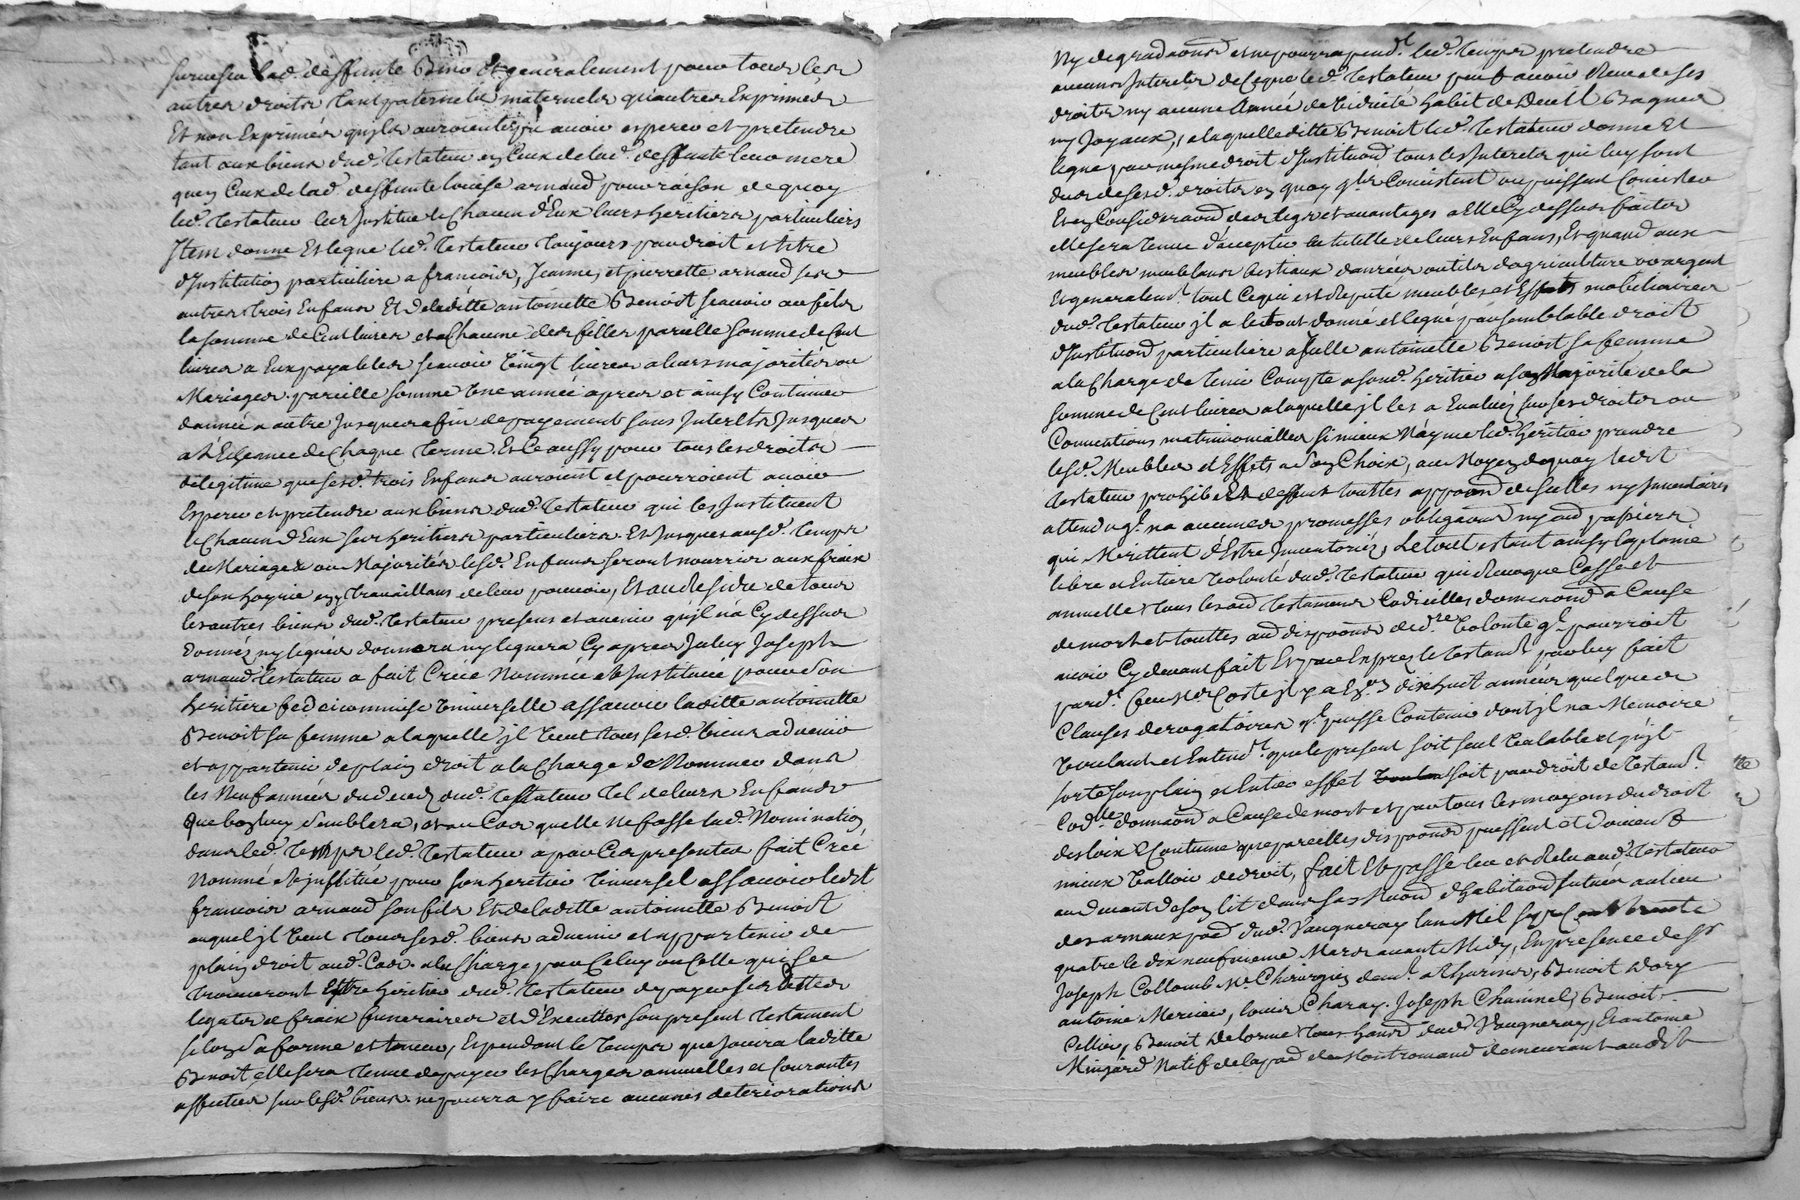 survescu lad. deffunte Bino Et generalement pour tous les
autres droits tant paternels maternels quautres Exprimés
Et non Exprimés quyls auroient peu avoir esperer et pretendre
tant aux biens dud. Testateur qu Ceux de lad. deffunte leur mere
quen Ceux de lad. deffunte louise arnaud pour raison de quoy
led. Testateur les Justitue et Chacun d'Eux leurs heritiers particuliers
Jtem donne Et legue led. Testateur toujours par droit et titre
d'Justitution particuliere a francois, Jeanne, et pierrette arnaud ses
autres trois Enfans Et de laditte antoinette Benoist scavoir au fils
la somme de Cent livres et a Chacune des filles pareille somme de Cent
livres a Eux payables scavoir Vingt livres a leurs majorités ou
Mariages pareille somme Une année apres et ainsy Continuer
d'année a autre Jusques a fin de payement sans Interets Jusques
a l'Echeance de Chaque terme Et Ce aussy pour tous les droits
de legitime que sesd. trois Enfans auroient et pourroient avoir
Esperer et pretendre aux biens dud. Testateur qui les Justituent
et Chacun d'Eux ses heritiers particuliers Et Jusques ausd. temps
de Mariages ou Majorités lesd. Enfans seront nourris aux fraix
de son hoyrie en y travaillans de leur pouvoir, Et au Residu de tous
les autres biens dud. Testateur presens et avenir quyl n'a Cy dessus
donnés ny legués donnera ny leguera Cy apres Jceluy Joseph
arnaud Testateur a fait Créé Nommée et Justituée pour son
heritiere fedeicommise Universelle assavoir laditte antoinette
Benoist sa femme a laquelle jl Veut tous sesd. biens advenir
et appartenir de plain droit a la Charge de Nommer dans
les Neuf années du deced dud. testateur tel de leurs Enfans
que bon luy semblera, et au Cas quelle ne fasse lad. Nomination
dans led. temps led. Testateur a par Ces presentes fait Créé
Nommé et justitué pour son heritier Universel assavoir ledit
francois arnaud son fils Et de laditte antoinette Benoist
auquel jl Veut tous sesd. biens advenir et appartenir de
plain droit aud. Cas a la Charge par Celuy ou Celle qui se
trouveront Estre heritier dud. Testateur de payer ses dettes
legats et fraix funeraires et d'Executer son present testament
selon sa forme et teneur, Et pendant le temps que jouira laditte
Benoist Elle sera tenue de payer les Charges annuelles et Courantes
affectées sur lesd. biens ne pourra y faire aucunes deteriorations
Ny degradaons et ne pourra pend.t led. temps pretendre
aucuns Interets de Ce que led. Testateur peut avoir Receu de ses
droits ny aucune Année de Viduité habit de Deuil Bagues
ny Joyaux, a laquelleditte Benoist led. Testateur donne Et
legue par mesme droit d'Justituaon tous les Interets qui luy sont
dus de sesd. droits en quoy qls Concistent ou puissent Concister
Et en Consideraon des legs et avantages a Elle Cy dessus faits
elle sera tenue d'accepter la tutelle de leurs Enfans, Et quand aux
meubles meublans bestiaux danrées outils d'agriculture or argent
Et generalem.t tout Ce qui est reputé meubles et Effets mobiliaires
dud. Testateur jl a le tout donné et legue par semblable droit
d'Justituaon particuliere a jcelle antoinette Benoist sa femme
a la Charge de tenir Compte a sond. heritier a sa Majorité de la
somme de Cent livres a laquelle jl les a Evalués sur ses droits ou
Conventions matrimonialles si mieux N'ayme led. heritier prandre
lesd. Meubles et Effets a son Choix, au Moyen de quoy ledit
testateur prohibe Et deffent touttes apposon de scelles ny Jnventaires
attendu ql n'a aucunes promesses obligaons ny aud papiers
qui Merittent d'Estre Jnventoriés, Le tout estant ainsy la plaine
libre et Entiere Volonté dud. Testateur qui Revoque Casse et
annulle tous les aud Testamens Codicilles donnaons a Cause
de mort et touttes aud dispoons de der.re Volonté ql pourroit
avoir Cy devant fait Et par Exprez le testam.t par luy fait
pard.t feu Me Coste jl y a Env.on dixhuit années quelques
Clauses derogatoires ql puisse Contenir dont jl n'a Memoire
Voulant et Entend.t que le present soit seul Valable et qu'jl
sorte son plain et Entier effet soit par droit de testam.t
Cod.lle donnaon a Cause de mort et par tous les moyens du droit
des loix & Coutume que pareilles dispoons puissent et doivent
mieux Valloir de droit, fait Et passé leu et Releu aud. Testateur
au devant de son lit dans sa Maon d'habituaon scituée au lieu
des arnaux pad dud. Vaugneray lan Mil sept Cent trente
quatre le dix neufvieme Mars avant Midy, En presence de Sr
Joseph Collomb Me Chirurgien dem.t a Thurins, Benoist Dory
antoine Mercier, louis Charay, Joseph Chainnel, Benoist
Cellier, Benoist Delorme tous hans dud. Vaugneray, Et antoine
Minjard Natif de la pad de Montromand demeurant audit